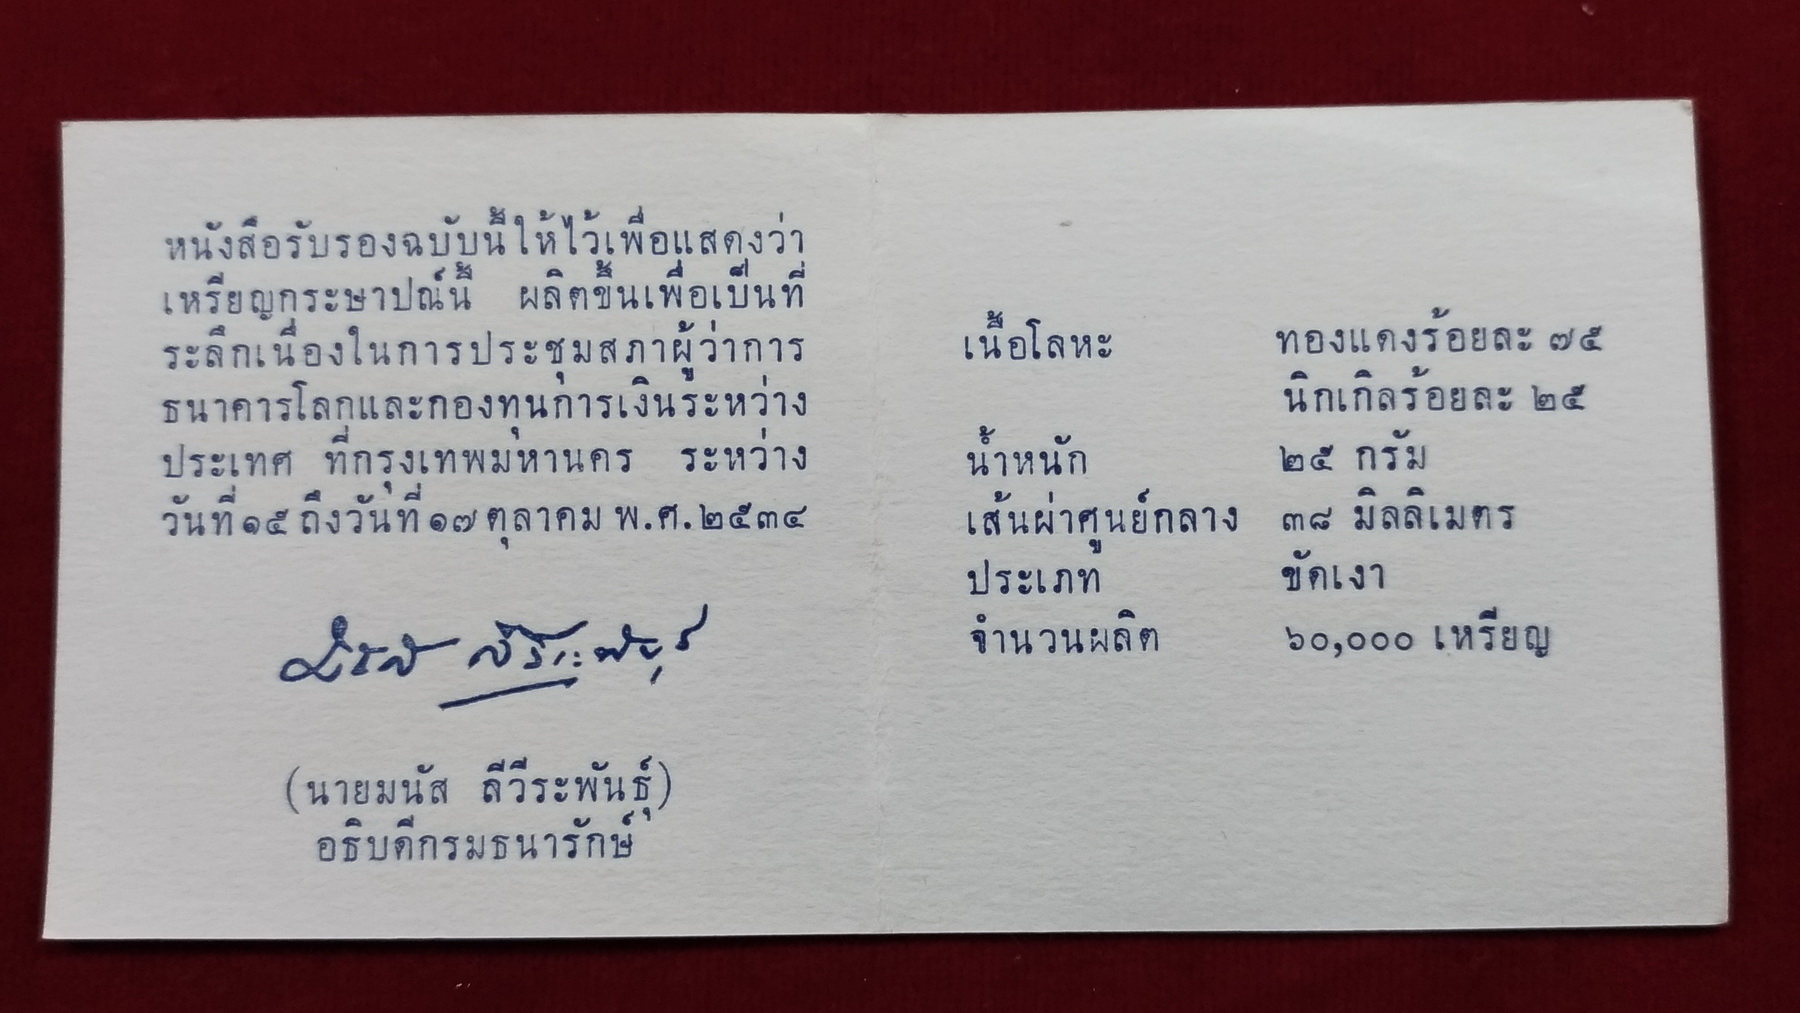 หนังสือรับรองฉบับนี้ให้ไว้เพื่อแสดงว่า
เหรียญกระษาปณ์นี้ ผลิตขึ้นเพื่อเป็นที่
ระลึกเนื่องในการประชุมสภาผู้ว่าการ
ธนาคารโลกและกองทุนการเงินระหว่าง
ประเทศ ที่กรุงเทพมหานคร ระหว่าง
วันที่ ๑๕ ถึงวันที่ ๑๗ ตุลาคม พ.ศ. ๒๕๓๔
(นายมนัส ลีวีระพันธุ์)
อธิบดีกรมธนารักษ์
เนื้อโลหะ ทองแดงร้อยละ ๗๕
นิกเกิลร้อยละ ๒๕
น้ำหนัก ๒๕ กรัม
เส้นผ่าศูนย์กลาง ๓๘ มิลลิเมตร
ประเภท ขัดเงา
จำนวนผลิต ๖๐,๐๐๐ เหรียญ